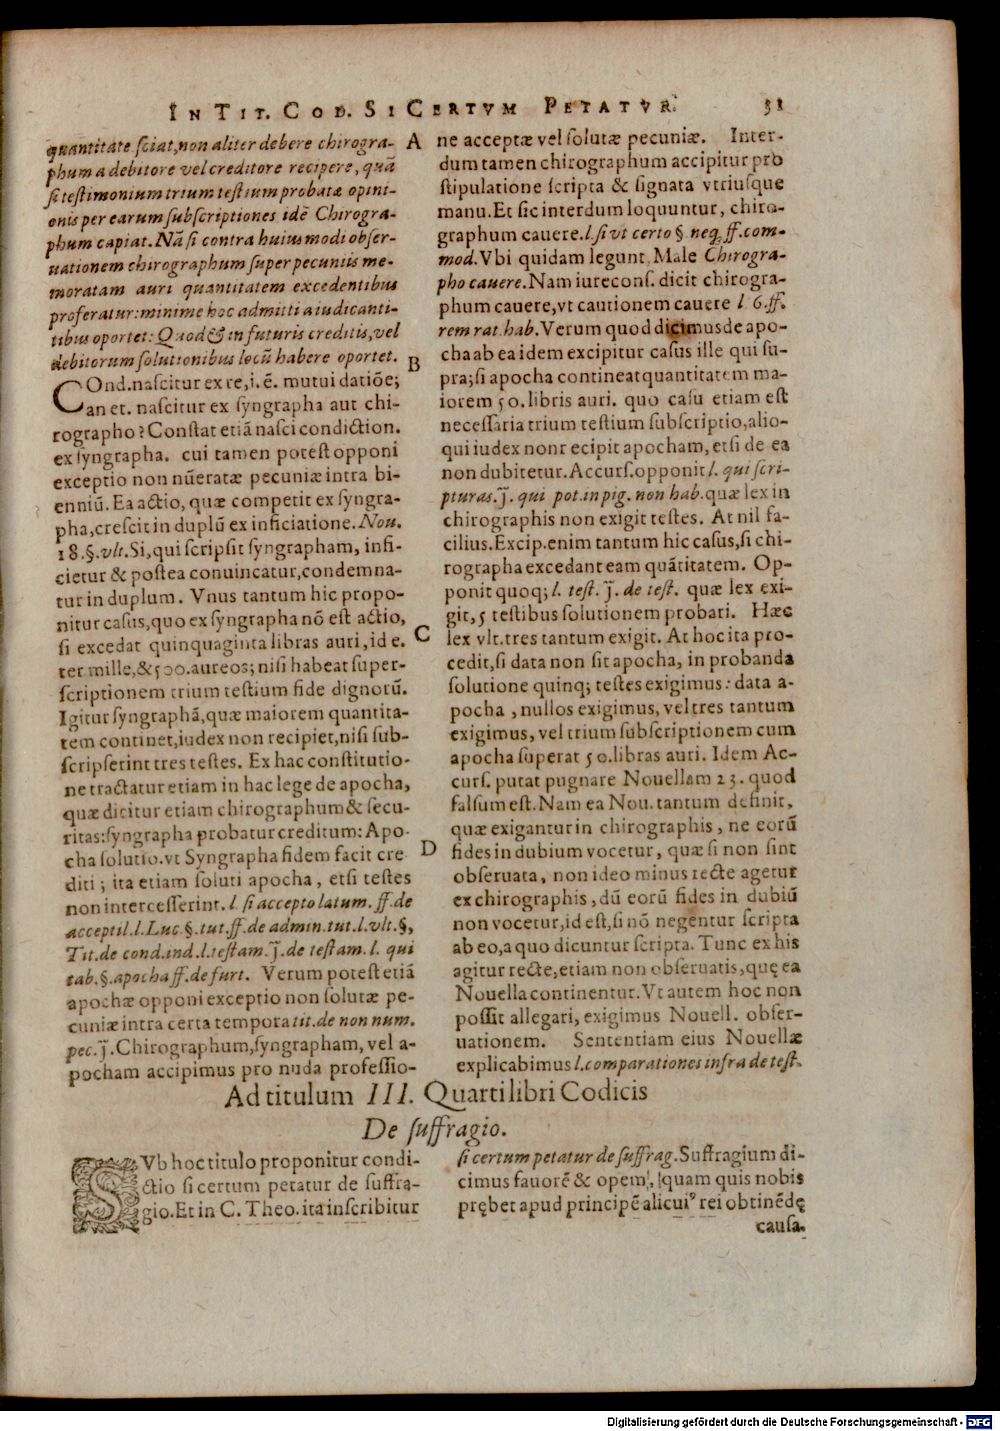 IN TIT. COD. SI CERTVM PETATVR. 31
quantitate sciat, non aliter debere chirogra-
phum a debitore vel creditore recipere, quā
si testimonium trium testium probatæ opini-
onis per earum subscriptiones idē Chirogra-
phum capiat. Nā si contra huiusmodi obser-
uationem chirographum super pecuniis me-
moratam auri quantitatem excedentibus
proferatur: minime hoc admitti a iudicanti-
tibus oportet: Quod & in futuris creditis, vel
debitorum solutionibus locū habere oportet.
COnd. nascitur ex re, i. ē. mutui datiōe;
an et. nascitur ex syngrapha aut chi-
rographo? Constat etiā nasci condiction.
ex syngrapha. cui tamen potest opponi
exceptio non nūeratæ pecuniæ intra bi-
enniū. Ea actio, quæ competit ex syngra-
pha, crescit in duplū ex inficiatione. Nou.
18. §. vlt. Si, qui scripsit syngrapham, infi-
cietur & postea conuincatur, condemna-
tur in duplum. Vnus tantum hic propo-
nitur casus, quo ex syngrapha nō est actio,
si excedat quinquaginta libras auri, id e.
ter mille, & 500. aureos; nisi habeat super-
scriptionem trium testium fide dignorū.
Igitur syngraphā, quæ maiorem quantita-
tem continet, iudex non recipiet, nisi sub-
scripserint tres testes. Ex hac constitutio-
ne tractatur etiam in hac lege de apocha,
quæ dicitur etiam chirographum & secu-
ritas: syngrapha probatur creditum: Apo-
cha solutio. vt Syngrapha fidem facit cre
diti; ita etiam soluti apocha, etsi testes
non intercesserint. l. si accepto latum. ff. de
acceptil. l. Luc. §. tut. ff. de admin. tut. l. vlt. §,
Tit. de cond. ind. l. testam. J. de testam. l. qui
tab. §. apocha ff. de furt. Verum potest etiā
apochæ opponi exceptio non solutæ pe-
cuniæ intra certa tempora tit. de non num.
pec. J. Chirographum, syngrapham, vel a-
pocham accipimus pro nuda professio-
A
B
C
D
ne acceptæ vel solutæ pecuniæ. Inter-
dum tamen chirographum accipitur pro
stipulatione scripta & signata vtriusque
manu. Et sic interdum loquuntur, chiro-
graphum cauere. l. si vt certo § neq; ff. com-
mod. Vbi quidam legunt, Male Chirogra-
pho cauere. Nam iurecons. dicit chirogra-
phum cauere, vt cautionem cauere l 6. ff.
rem rat. hab. Verum quod dicimus de apo-
cha ab ea idem excipitur casus ille qui su-
pra; si apocha contineat quantitatem ma-
iorem 50. libris auri. quo casu etiam est
necessaria trium testium subscriptio, alio-
qui iudex non recipit apocham, etsi de ea
non dubitetur. Accurs. opponit l. qui scri-
pturas. J. qui pot. in pig. non hab. quæ lex in
chirographis non exigit testes. At nil fa-
cilius. Excip. enim tantum hic casus, si chi-
rographa excedant eam quātitatem. Op-
ponit quoq; l. test. J. de test. quæ lex exi-
git, 5 testibus solutionem probari. Hæc
lex vlt. tres tantum exigit. At hoc ita pro-
cedit, si data non sit apocha, in probanda
solutione quinq; testes exigimus: data a-
pocha, nullos exigimus, vel tres tantum
exigimus, vel trium subscriptionem cum
apocha superat 50. libras auri. Idem Ac-
curs. putat pugnare Nouellam 23. quod
falsum est. Nam ea Nou. tantum definit,
quæ exigantur in chirographis, ne eorū
fides in dubium vocetur, quæ si non sint
obseruata, non ideo minus recte agetur
ex chirographis, dū eorū fides in dubiū
non vocetur, id est, si nō negentur scripta
ab eo, a quo dicuntur scripta. Tunc ex his
agitur recte, etiam non obseruatis, quę ea
Nouella continentur. Vt autem hoc non
possit allegari, exigimus Nouell. obser-
uationem. Sententiam eius Nouellæ
explicabimus l. comparationes infra de test.
Ad titulum III. Quarti libri Codicis
De suffragio.
SVb hoc titulo proponitur condi-
ctio si certum petatur de suffra-
gio. Et in C. Theo. ita inscribitur
si certum petatur de suffrag. Suffragium di-
cimus fauorē & opem, quam quis nobis
pręber apud principē alicui⁹ rei obtinēdę
causa.
Digitalisierung gefördert durch die Deutsche Forschungsgemeinschaft - DFG